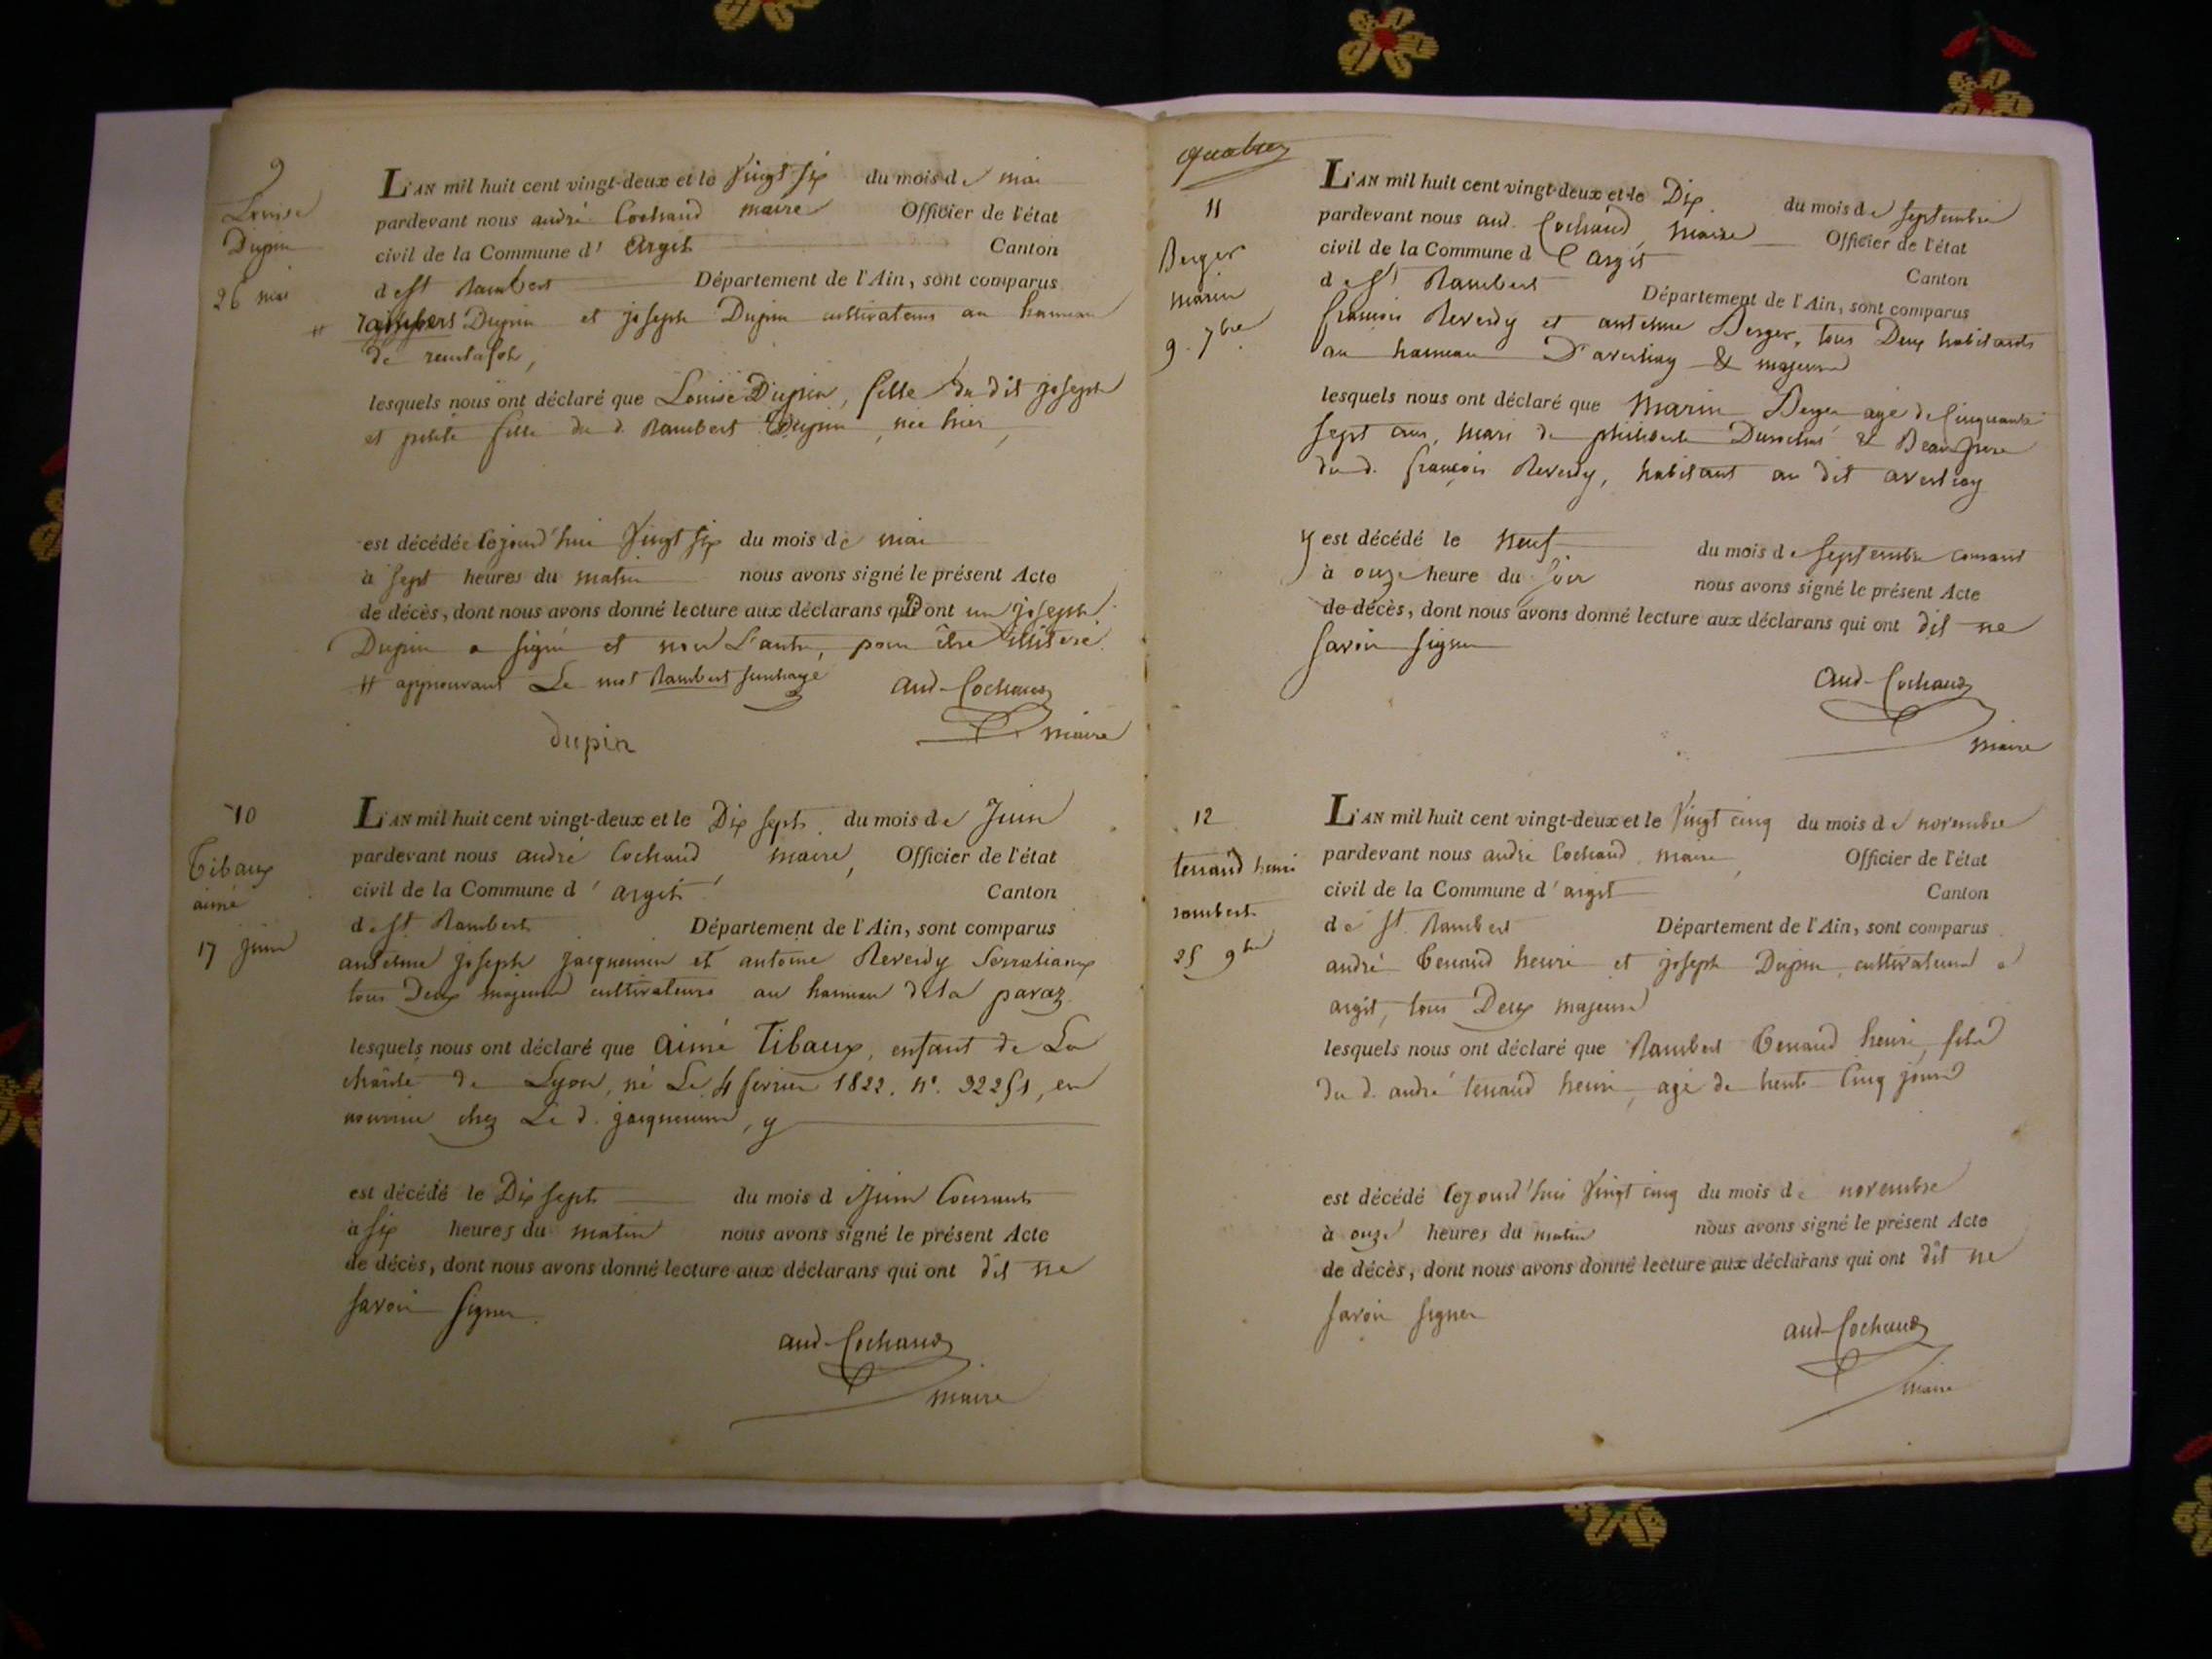 9
Louise
Dupin
26 mai
L'AN mil huit cent vingt-deux et le Vingt Six du mois de mai
pardevant nous andré Cochaud maire Officier de l'état
civil de la Commune d' Argit Canton
de St Rambert Département de l'Ain, sont comparus
# rambert Dupin et joseph Dupin cultivateurs au hameau
de
lesquels nous ont déclaré que Louise Dupin, fille du dit joseph
et petite fille du d. Rambert Dupin, née hier,
est décédée Cejourd'hui Vingt Six du mois de mai
à Sept heures du matin nous avons signé le présent Acte
de décès, dont nous avons donné lecture aux déclarans qui Dont un joseph
Dupin a signé et non L'autre, pour être illitéré.
# approuvant Le mot Rambert surchargé
and-Cochaud
maire
dupin
10
Tibaux
aimé
17 juin
L'AN mil huit cent vingt-deux et le Dix Sept du mois de Juin
pardevant nous andré Cochaud, maire, Officier de l'état
civil de la Commune d' argit Canton
de St Rambert Département de l'Ain, sont comparus
antelme joseph jacquemin et antoine Reverdy
tous Deux majeurs cultivateurs au hameau de la paraz
lesquels nous ont déclaré que aimé Tibaux, enfant de La
charité de Lyon, né Le 4 fevrier 1822. n°. 32251, en
nourrice chez Le d. jacquemin, y
est décédé le Dix Sept du mois de Juin Courant
à Six heures du matin nous avons signé le présent Acte
de décès, dont nous avons donné lecture aux déclarans qui ont dit ne
Savoir Signer.
and-Cochaud
maire
quatre
11
Berger
marin
9. 7bre
L'AN mil huit cent vingt-deux et le Dix du mois de Septembre
pardevant nous and. Cochaud, maire Officier de l'état
civil de la Commune d' argit Canton
de St Rambert Département de l'Ain, sont comparus
françois Reverdy et antelme Berger, tous Deux habitants
au hameau D' averliay & majeurs
lesquels nous ont déclaré que Marin Berger agé de Cinquante
Sept ans, mari de philiberte & Beaupere
du d. françois Reverdy, habitant au dit averliay
y est décédé le Neuf du mois de Septembre courant
à onze heure du Soir nous avons signé le présent Acte
de décès, dont nous avons donné lecture aux déclarans qui ont dit ne
Savoir Signer
and-Cochaud
maire
12
tenand henri
rambert
25 9bre
L'AN mil huit cent vingt-deux et le Vingt cinq du mois de novembre
pardevant nous andré Cochaud, maire, Officier de l'état
civil de la Commune d' argit Canton
de St. Rambert Département de l'Ain, sont comparus
andré tenand henri et joseph Dupin, cultivateurs a
argit, tous Deux majeurs
lesquels nous ont déclaré que Rambert tenand henri, fils
du d. andré tenand henri, agé de trente Cinq jours
est décédé Cejourd'hui Vingt cinq du mois de novembre
à onze heures du matin nous avons signé le présent Acte
de décès, dont nous avons donné lecture aux déclarans qui ont dit ne
Savoir Signer
and-Cochaud
maire